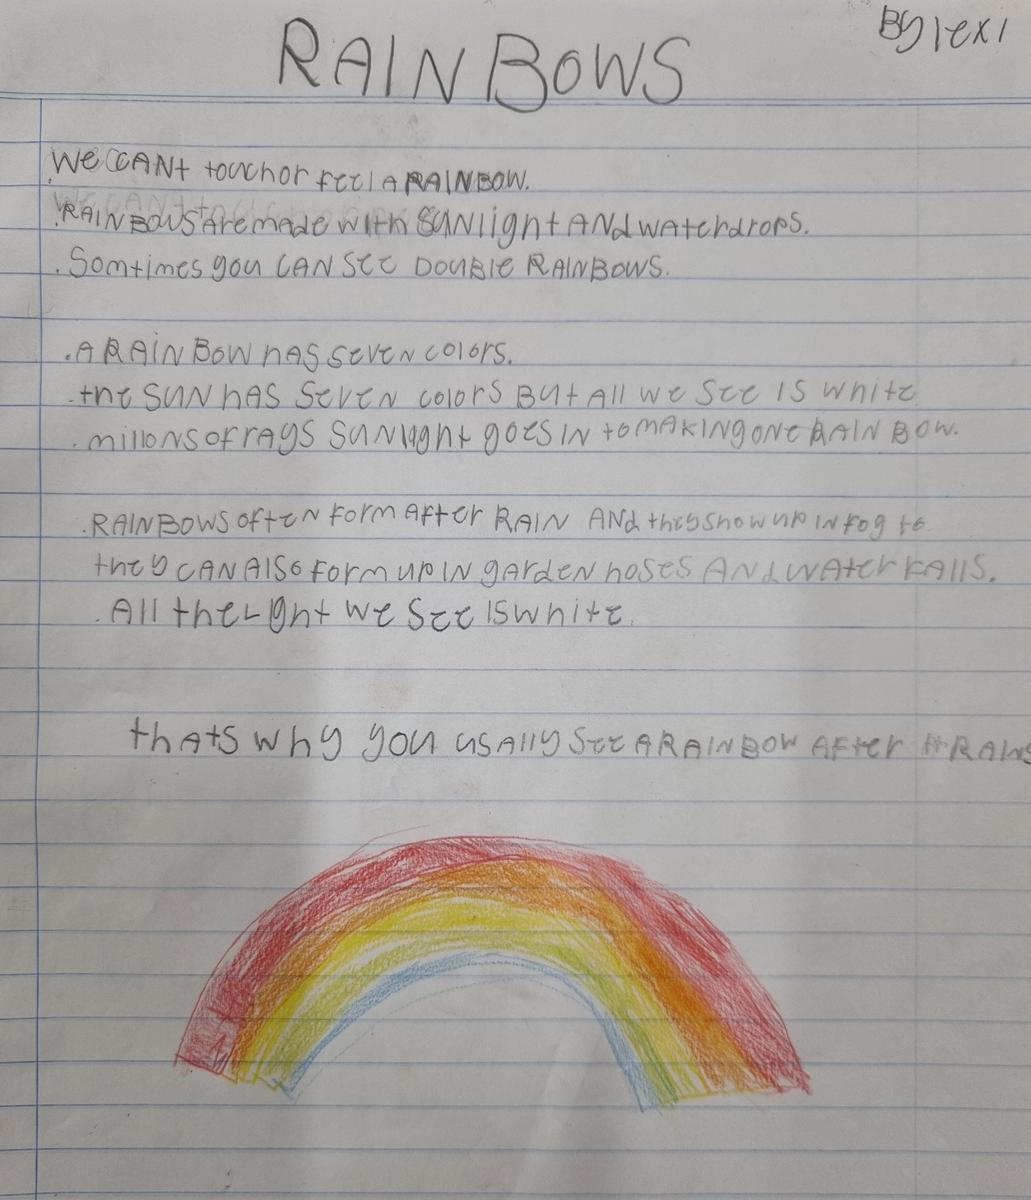 By lexi
RAINBOWS
.We CANt touch or feel A RAINBOW.
.RAINBOWS Are made with SUNlight ANd waterdrops.
.Somtimes you CAN see DOUBle RAINBOWS.
.A RAINBOW hAS seveN colors.
.the SUN hAS SeveN colors BUt All we see IS white
.millons of rays SUNlaght goes IN to mAKINg oNe RAINBOW.
.RAINBOWS ofteN form After RAIN ANd they show up IN fog to
they CAN AlSo form up IN gArdeN hoses ANd water fAlls.
.All the Light we see IS white.
thAts why you usAlly see A RAINBOW After It RAINS